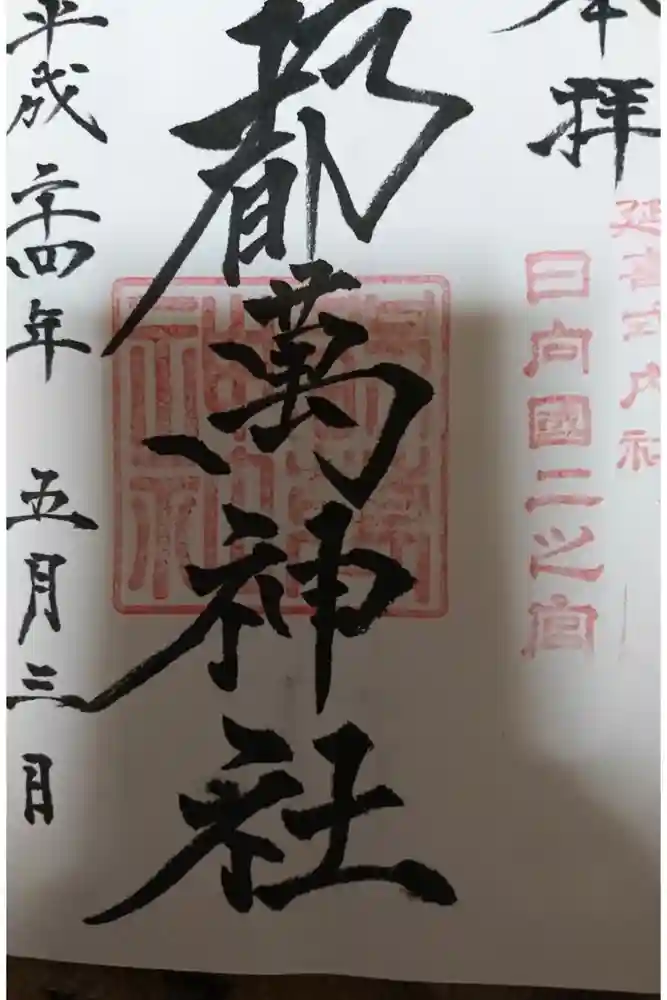 奉拝
延喜式内社
日向國二之宮
都萬神社
平成二十四年 五月三日